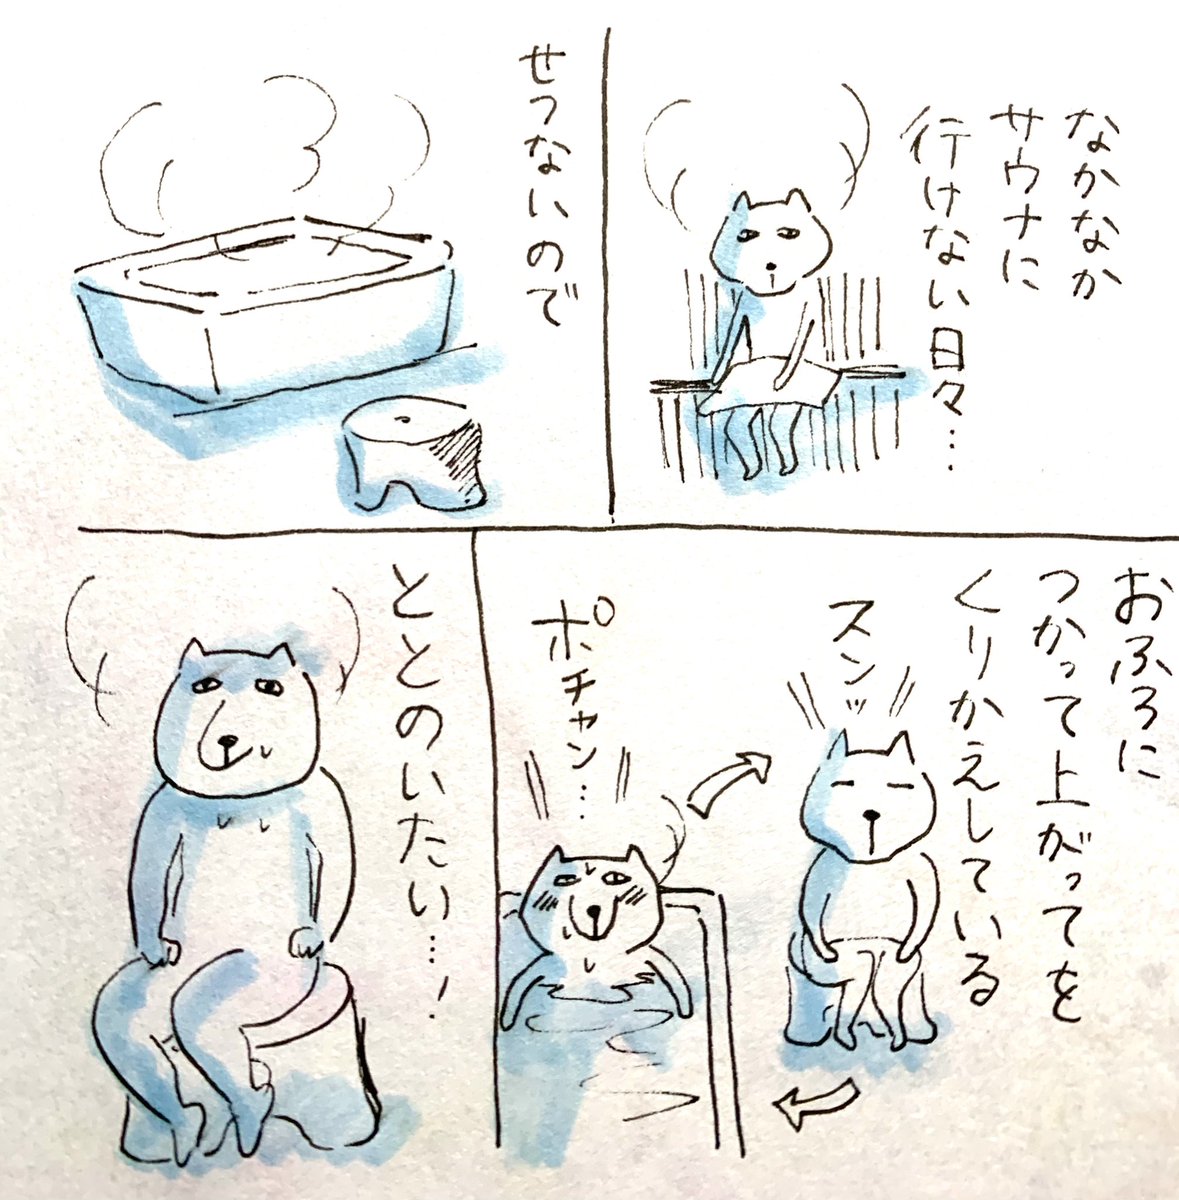 なかなか
サウナに
行けない日々…
せつないので
おふろに
つかって上がってを
くりかえしている
スンッ
ポチャン…
ととのいたい…!